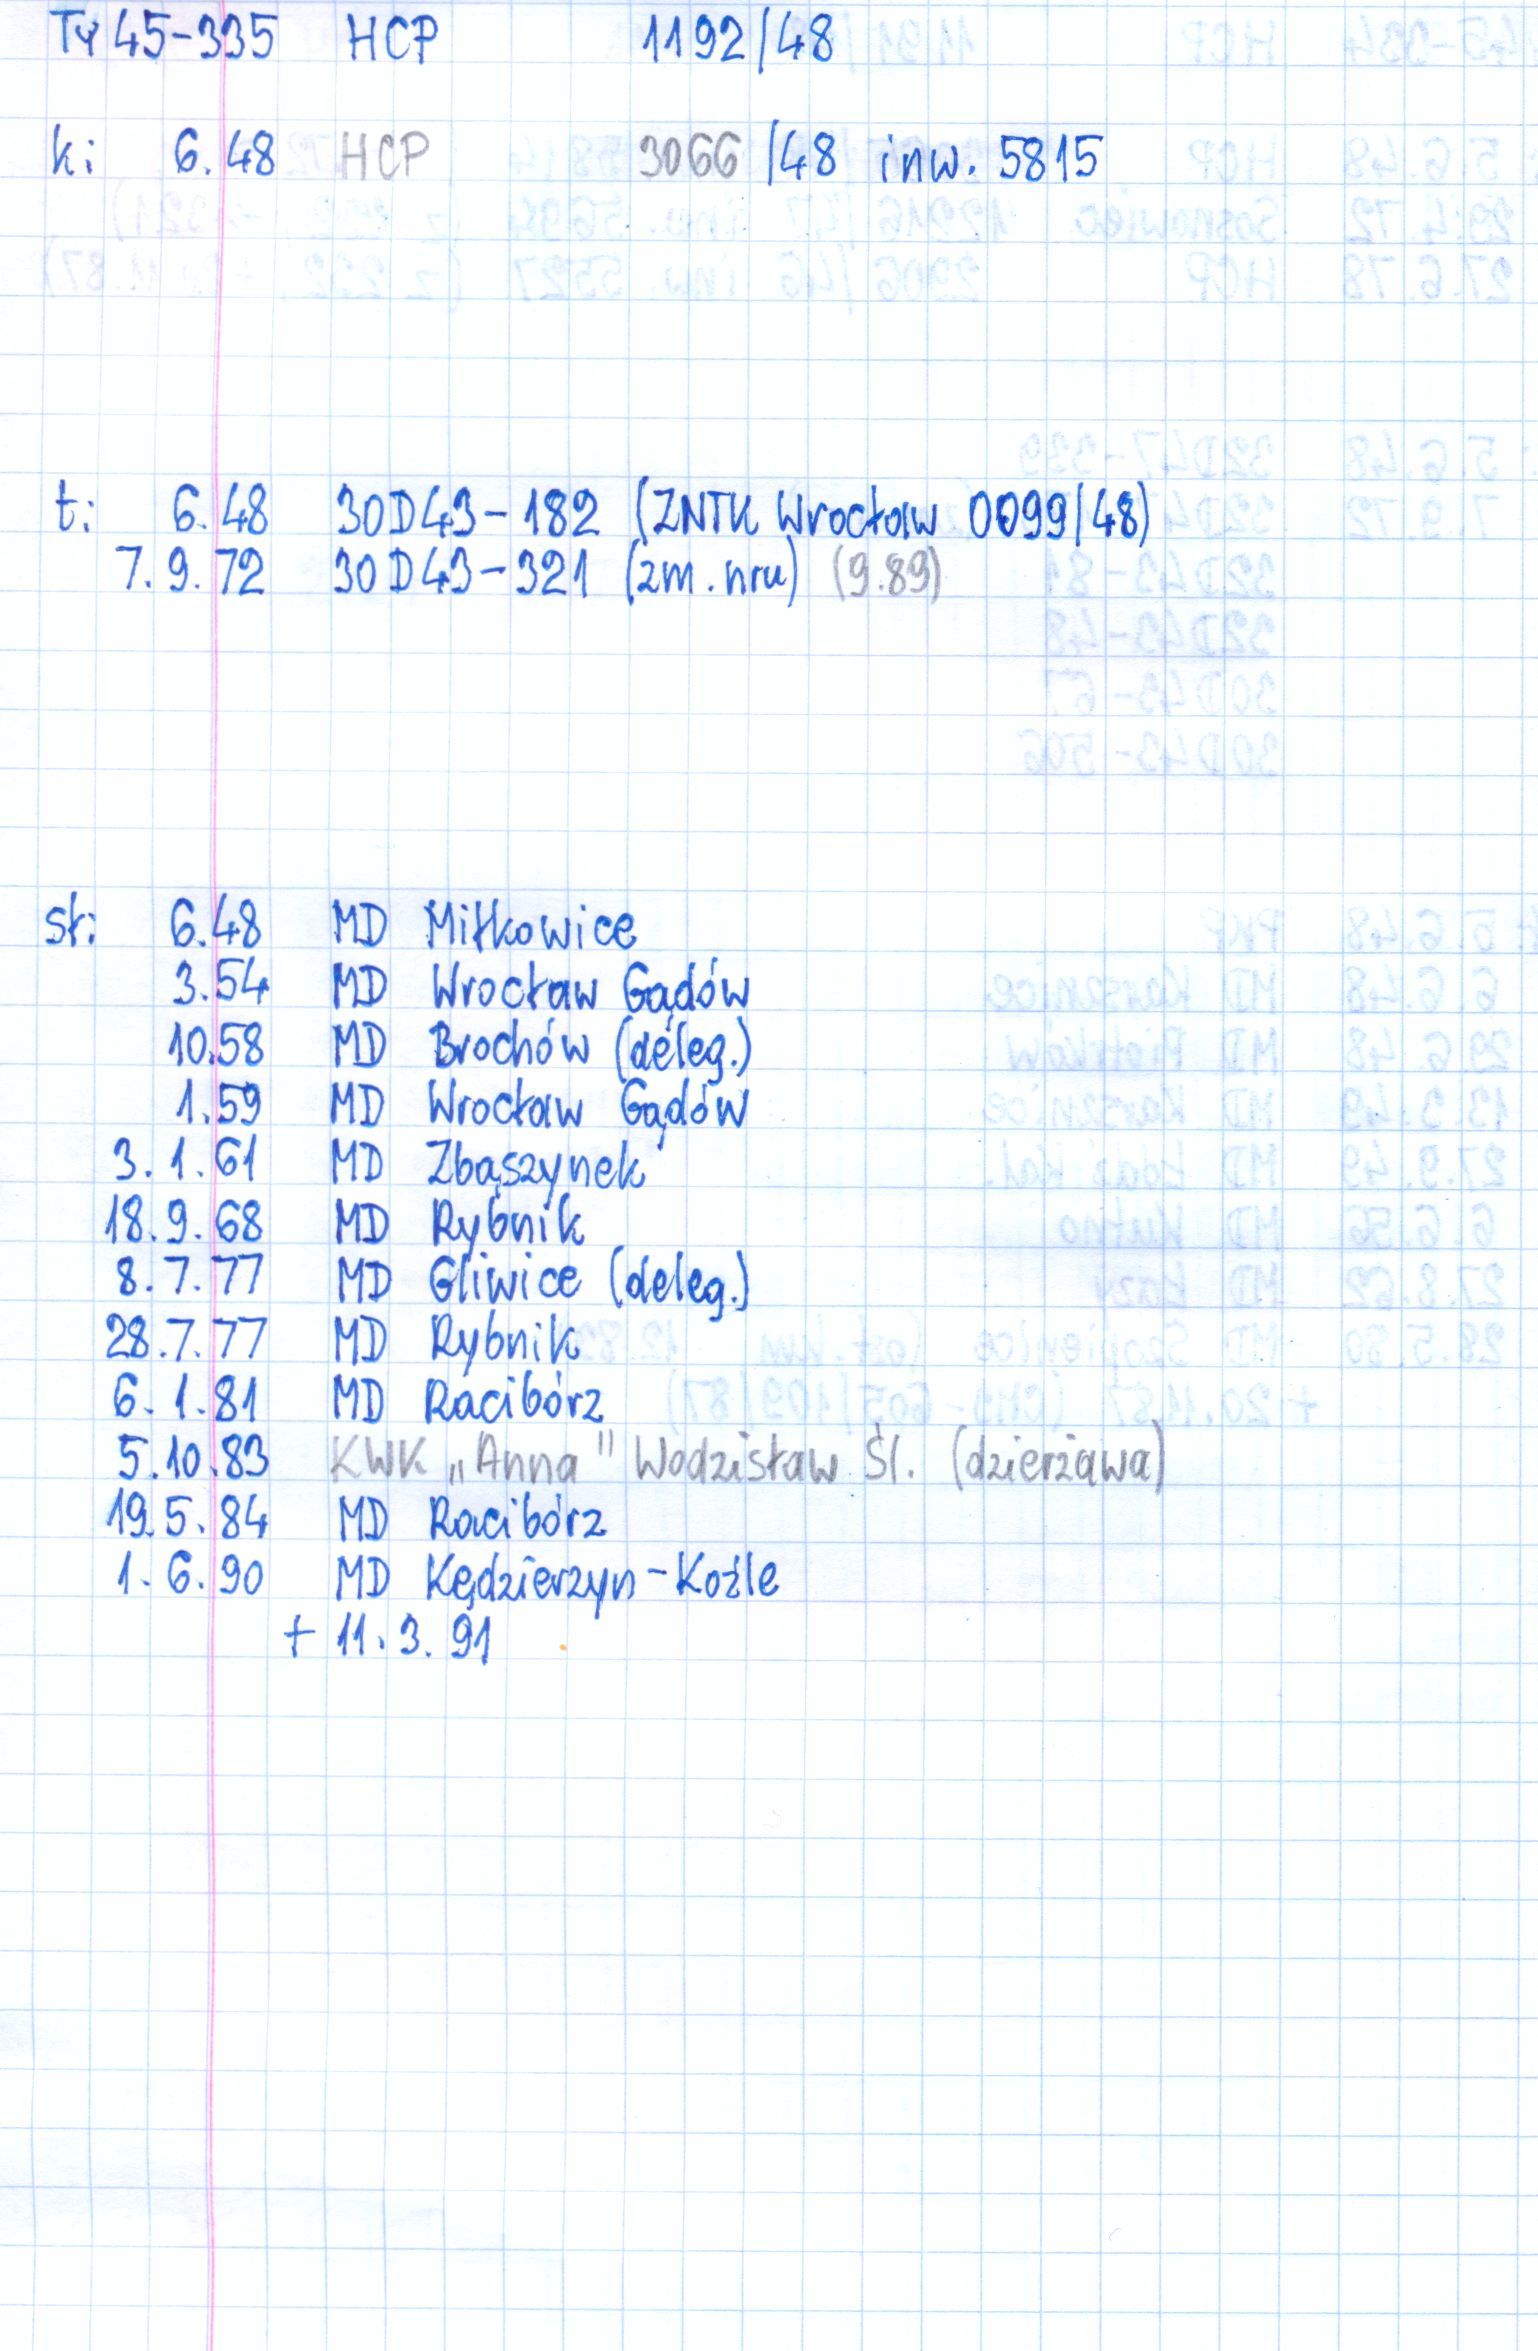 Ty45-335 HCP 1192/48
k: 6.48 HCP 3066 /48 inw. 5815
t: 6.48 30D43-182 (ZNTK Wrocław 0099/48)
7.9.72 30D43-321 (zm. nru) (9.89)
st: 6.48 MD Miłkowice
3.54 MD Wrocław Gądów
10.58 MD Brochów (deleg.)
1.59 MD Wrocław Gądów
3.1.61 MD Zbąszynek
18.9.68 MD Rybnik
8.7.77 MD Gliwice (deleg.)
28.7.77 MD Rybnik
6.1.81 MD Racibórz
5.10.83 KWK „Anna" Wodzisław Śl. (dzierżawa)
19.5.84 MD Racibórz
1.6.90 MD Kędzierzyn-Koźle
+ 11.3.91